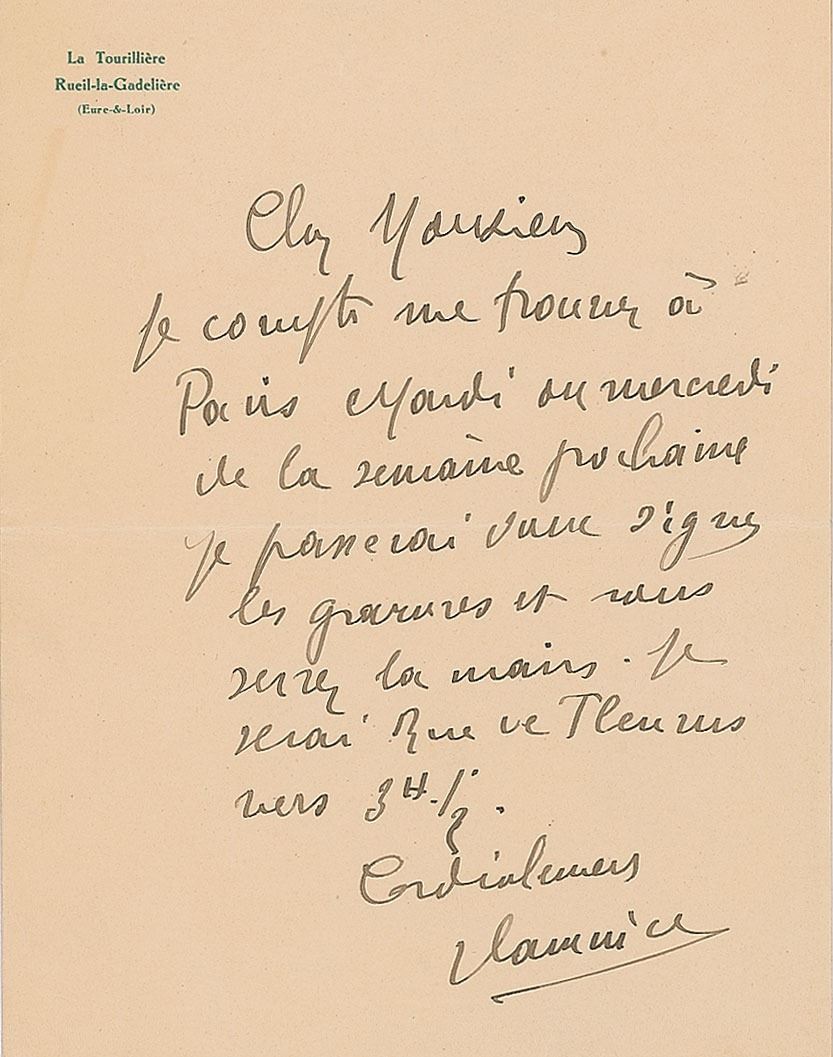 La Tourillière
Rueil-la-Gadelière
(Eure-&-Loir)
Cher Monsieur
Je compte me trouver à
Paris Mardi ou mercredi
de la semaine prochaine
Je passerai donc signer
les gravures et vous
serrer la main. Je
serai Rue de Fleurus
vers 3H.½.
Cordialement
Vlaminck